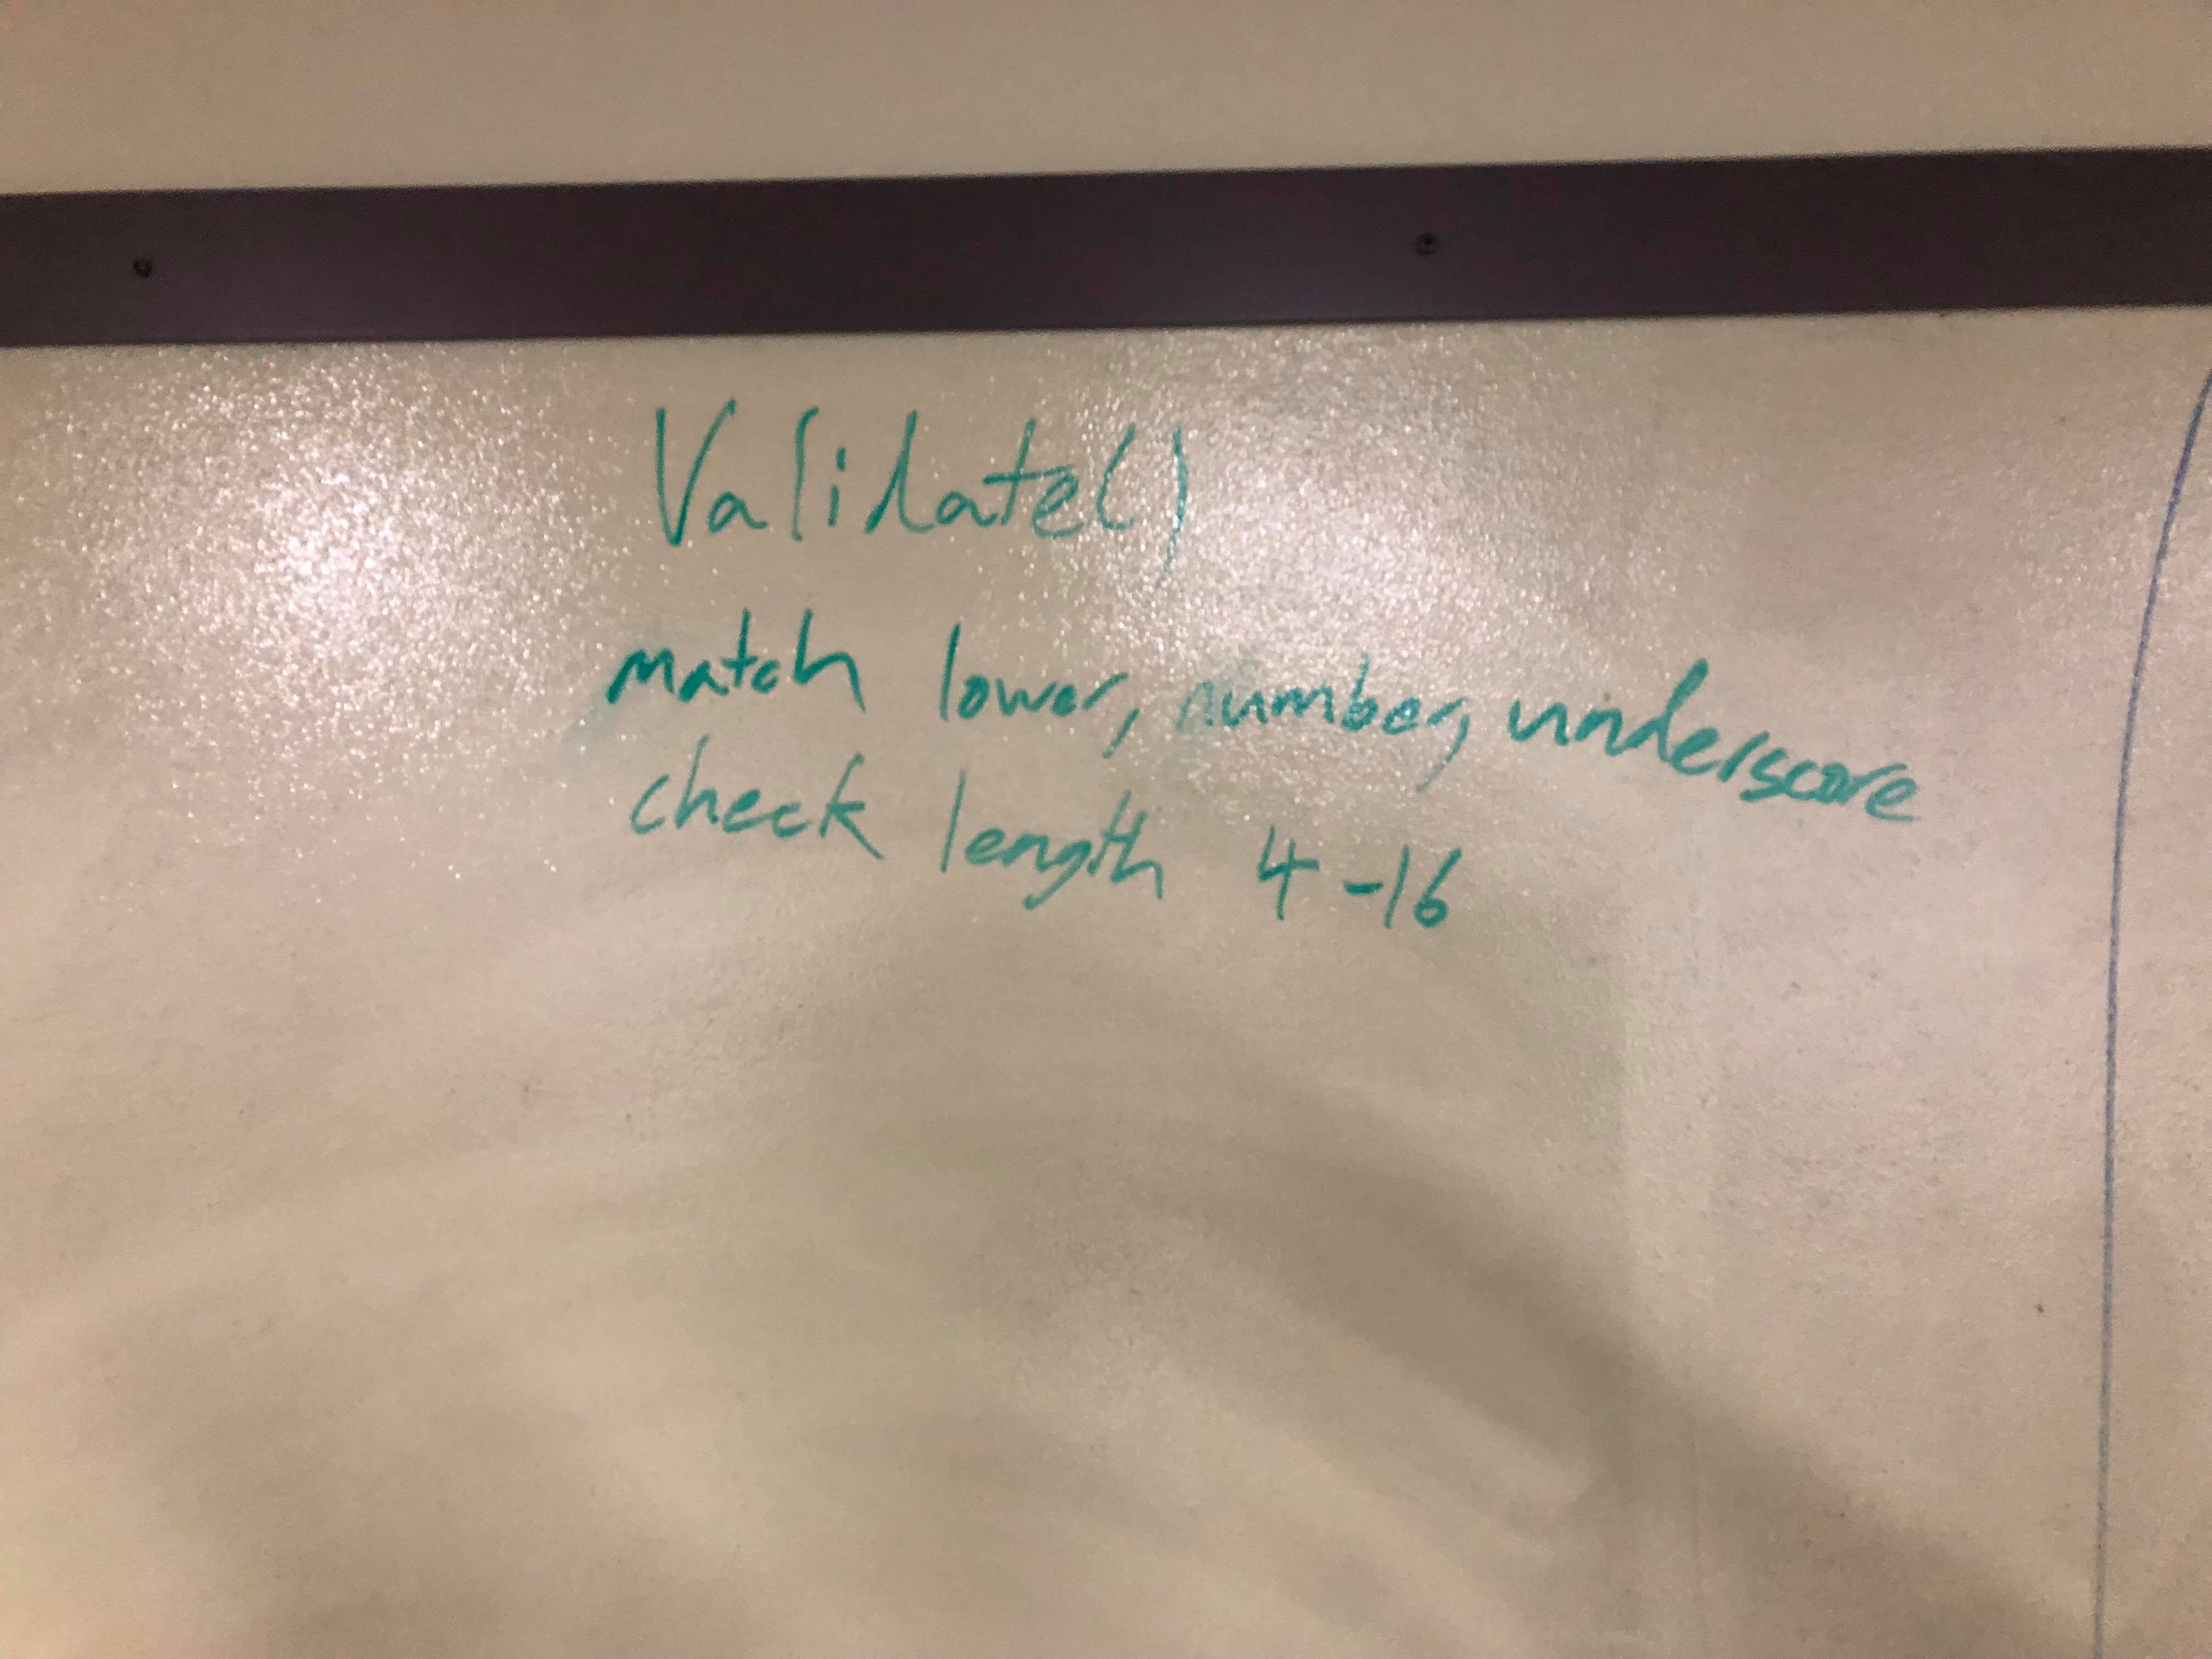 Validate()
match lower, number, underscore
check length 4-16